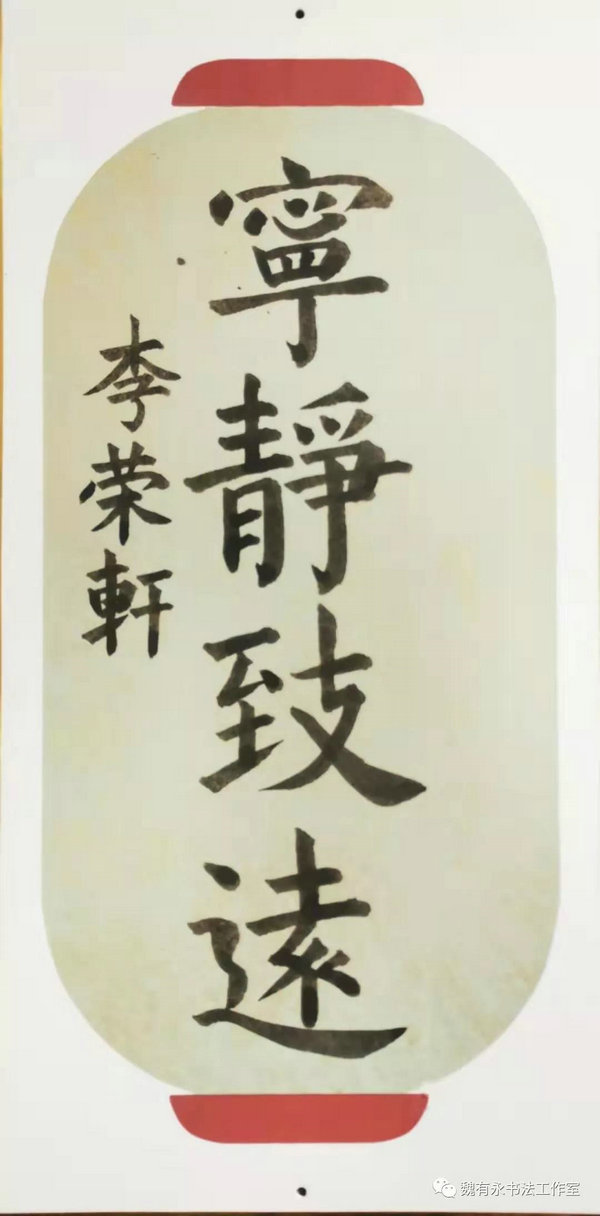 寧靜致遠
李荣軒
魏有永书法工作室